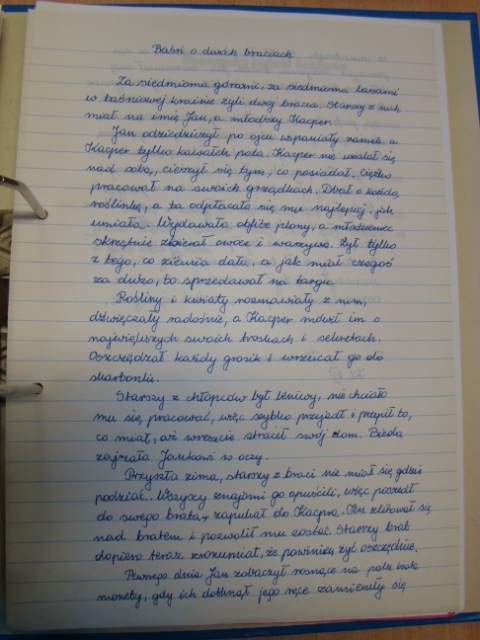 Baśń o dwóch braciach
Za siedmioma górami, za siedmioma lasami
w baśniowej krainie żyli dwaj bracia. Starszy z nich
miał na imię Jan, a młodszy Kacper.
Jan odziedziczył po ojcu wspaniały zamek, a
Kacper tylko kawałek pola. Kacper nie użalał się
nad sobą, cieszył się tym, co posiadał. Ciężko
pracował na swoich grządkach. Dbał o każdą
roślinkę, a ta odpłacała się mu najlepiej jak
umiała. Wydawała obfite plony, a młodzieniec
skrzętnie zbierał owoce i warzywa. Żył tylko
z tego, co ziemia dała, a jak miał czegoś
za dużo, to sprzedawał na targu.
Rośliny i kwiaty rozmawiały z nim,
dźwięczały radośnie, a Kacper mówił im o
największych swoich troskach i sekretach.
Oszczędzał każdy grosik i wrzucał go do
skarbonki.
Starszy z chłopców był leniwy, nie chciało
mu się pracować, więc szybko przejadł i przepił to,
co miał, aż wreszcie stracił swój dom. Bieda
zajrzała Jankowi w oczy.
Przyszła zima, starszy z braci nie miał się gdzie
podziać. Wszyscy znajomi go opuścili, więc poszedł
do swego brata, zapukał do Kacpra. Ten zlitował się
nad bratem i pozwolił mu zostać. Starszy brat
dopiero teraz zrozumiał, że powinien żyć oszczędnie.
Pewnego dnia Jan zobaczył rosnące na polu brata
monety, gdy ich dotknął jego ręce zamieniły się